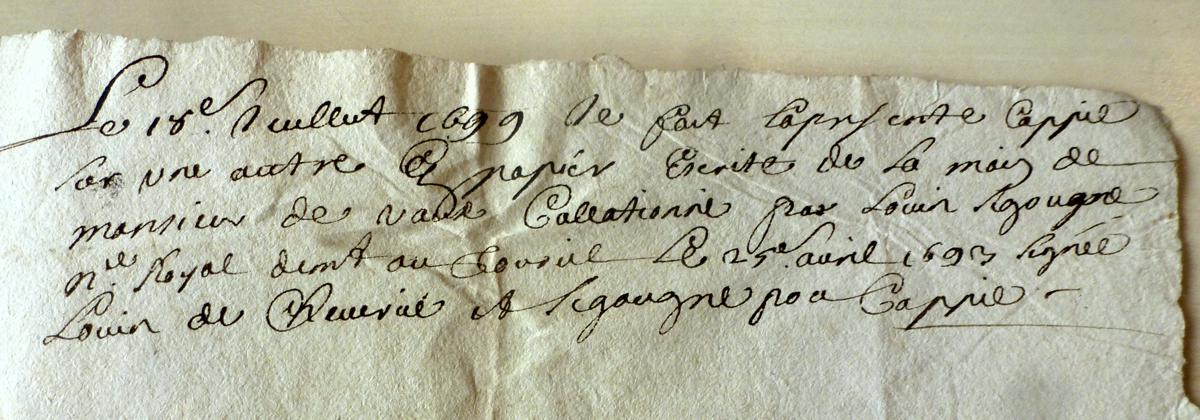 Le 18e. Juillut 1699 Je fait laprssente Coppie
sur une auttre En papier Escritte de la main de
monsieur de vaux Collationné par Louis Segougne
n.re Royal demt au Le 25e. avril 1693 signée
Louis de et Segougne pour Coppie -